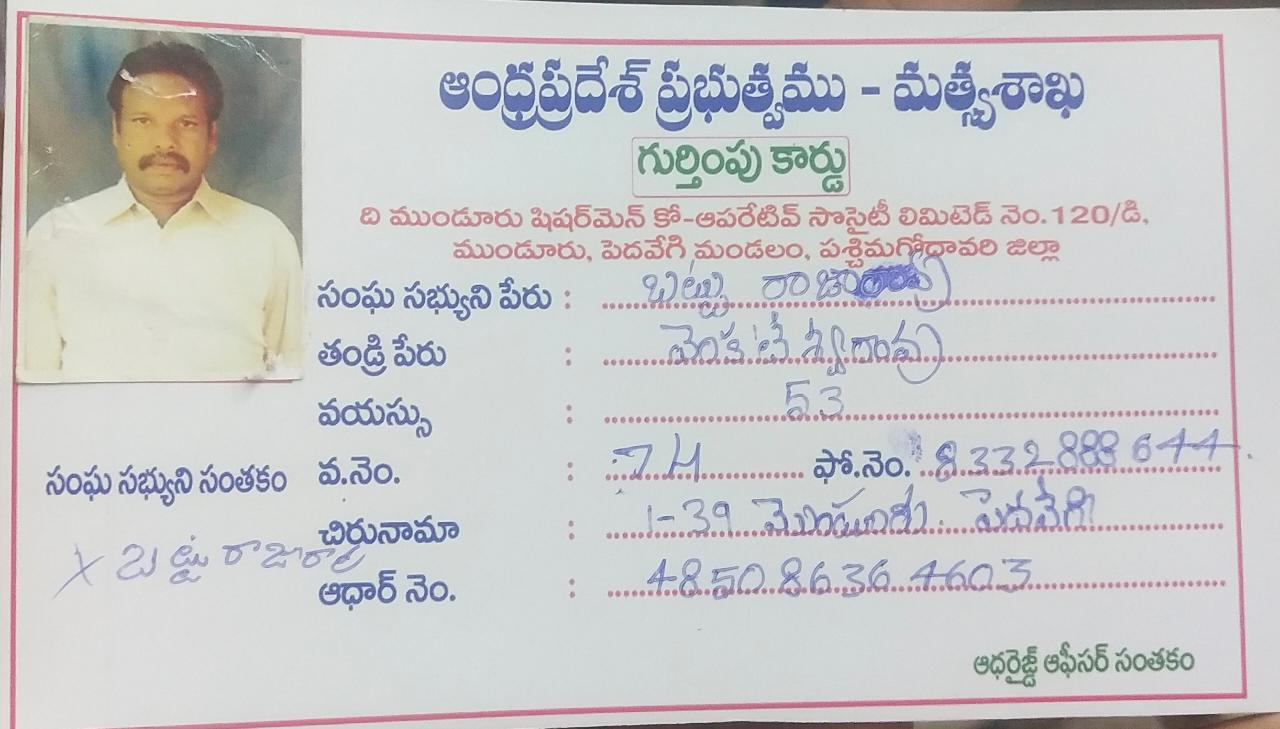 ఆంధ్రప్రదేశ్ ప్రభుత్వము - మత్స్యశాఖ
గుర్తింపు కార్డు
ది ముండూరు షిషర్‌మెన్ కో-ఆపరేటివ్ సొసైటీ లిమిటెడ్ నెం.120/డి,
ముండూరు, పెదవేగి మండలం, పశ్చిమగోదావరి జిల్లా
సంఘ సభ్యుని పేరు : బట్టు రాజారావు
తండ్రి పేరు : వెంకటేశ్వరావు
వయస్సు : 53
వ.నెం. : 74 ఫో.నెం. 8332888644
చిరునామా : 1-39 ముండూరు. పెదవేగి
ఆధార్ నెం. : 4850 8636 4603
సంఘ సభ్యుని సంతకం
X బట్టు రాజారావు
ఆధరైజ్డ్ ఆఫీసర్ సంతకం